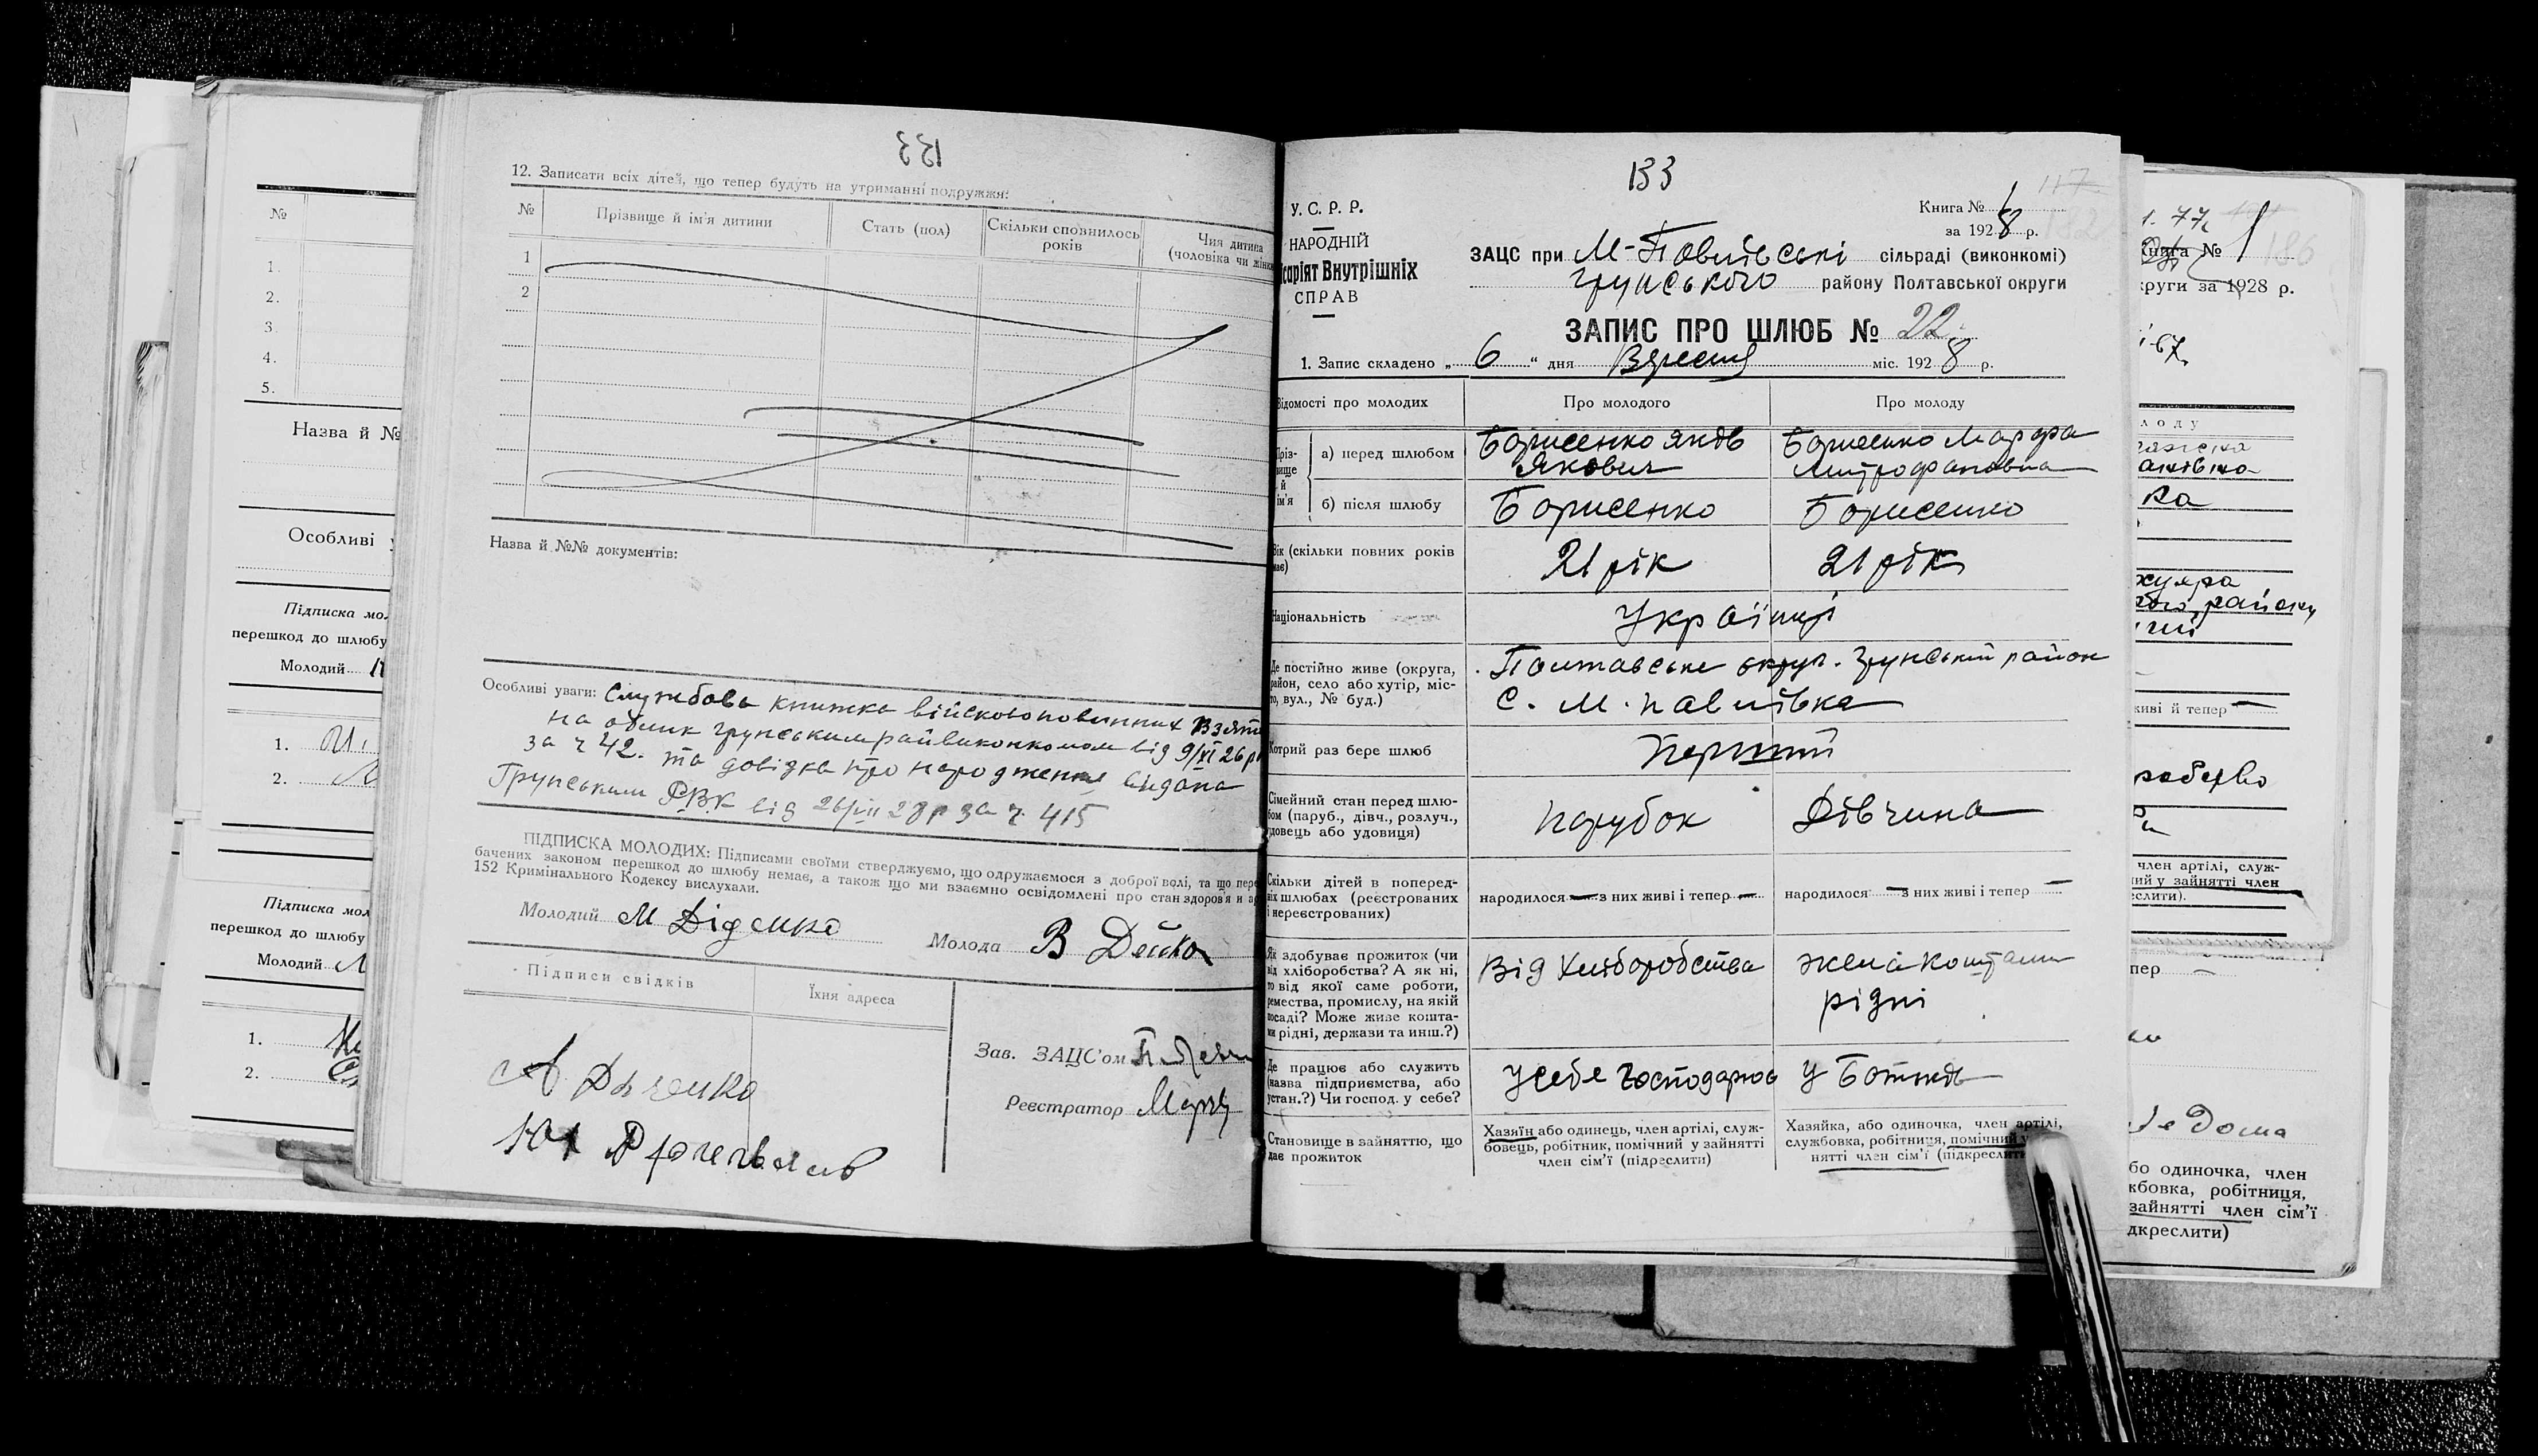 №
1.
2.
3.
4.
5.
Назва й №
Особливі
Підписка мол
перешкод до шлюбу
Молодий
1.
2.
Підписка мол
перешкод до шлюбу
Молодий
1.
2.
133
12. Записати всіх дітей, що тепер будуть на утриманні подружжя:
№
Прізвище й ім'я дитини
Стать (пол)
Скільки сповнилось
років
Чия дитина
(чоловіка чи жінки
1
2
Назва й №№ документів:
Особливі уваги: Службова книжка військовоповинних Взята
на облик Грунським райвиконкомом від 9/XI 26 р
за ч 42. та довідка про народження видана
Грунським РВК від 26/VII 28 р за ч. 415
ПІДПИСКА МОЛОДИХ: Підписами своїми стверджуємо, що одружаємося з доброї волі, та що пере
бачених законом перешкод до шлюбу немає, а також що ми взаємно освідомлені про стан здоров'я и
152 Кримінального Кодексу вислухали.
Молодий М Діденко
Молода В Дейка
Підписи свідків
Їхня адреса
А Дяченко
Зав. ЗАЦС'ом
Реєстратор
133
117
У. С. Р. Р.
НАРОДНІЙ
ісаріят Внутрішніх
СПРАВ
Книга № 1
за 1928 р.
132
ЗАЦС при М-Павлівські сільраді (виконкомі)
Грунського району Полтавської округи
ЗАПИС ПРО ШЛЮБ № 22
1. Запис складено „ 6 “ дня Вересня міс. 1928 р.
Відомості про молодих
Про молодого
Про молоду
Пріз-
вище
й
ім'я
а) перед шлюбом
Борисенко Яків
Якович
Борисенко Марфа
Митрофановна
б) після шлюбу
Борисенко
Борисенко
Вік (скільки повних років
має)
21 рік
21 рік
Національність
Українці
Де постійно живе (округа,
район, село або хутір, міс-
то, вул., № буд.)
Полтавське округ. Грунський район
С. М. Павлівка
Котрий раз бере шлюб
Перший
Сімейний стан перед шлю-
бом (паруб., дівч., розлуч.,
удовець або удовиця)
Парубок
Дівчина
Скільки дітей в поперед-
ніх шлюбах (реєстрованих
і нереєстрованих)
народилося — з них живі і тепер —
народилося — з них живі і тепер —
Як здобуває прожиток (чи
від хліборобства? А як ні,
то від якої саме роботи,
ремества, промислу, на якій
посаді? Може живе кошта-
ми рідні, держави та инш.?)
Від Хліборобства
жена коштами
рідні
Де працює або служить
(назва підприємства, або
устан.?) Чи господ. у себе?
У себе господарює
У Батьків
Становище в зайняттю, що
дає прожиток
Хазяїн або одинець, член артілі, служ-
бовець, робітник, помічний у зайнятті
член сім'ї (підреслити)
Хазяйка, або одиночка, член артілі,
службовка, робітниця, помічний у
нятті член сім'ї (підкреслити
1. 77
Книга № 1
186
круги за 1928 р.
лоду
ка
живі й тепер —
член артілі, служ-
ий у зайнятті член
еслити).
пер —
Дома
бо одиночка, член
жбовка, робітниця,
зайнятті член сім'ї
дкреслити)